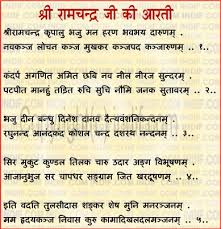 श्री रामचन्द्र जी की आरती
श्रीरामचन्द्र कृपालु भजु मन हरण भवभय दारुणम् ।
नवकञ्ज लोचन कञ्ज मुखकर कञ्जपद कञ्जारुणम् .. १..
कंदर्प अगणित अमित छबि नव नील नीरज सुन्दरम् ।
पटपीत मानहुं तड़ित रुचि सुचि नौमि जनक सुतावरम् .. २..
भजु दीन बन्धु दिनेश दानव दैत्यवंशनिकन्दनम् ।
रघुनन्द आनंदकंद कोशल चन्द दशरथ नन्दनम् .. ३..
सिर मुकुट कुण्डल तिलक चारु उदार अङ्ग विभूषणम् ।
आजानुभुज सर चापधर सङ्ग्राम जित खरदूषणम् .. ४..
इति वदति तुलसीदास शङ्कर शेष मुनि मनरञ्जनम् ।
मम हृदयकञ्ज निवास कुरु कामादिखलदलमञ्जनम् .. ५..